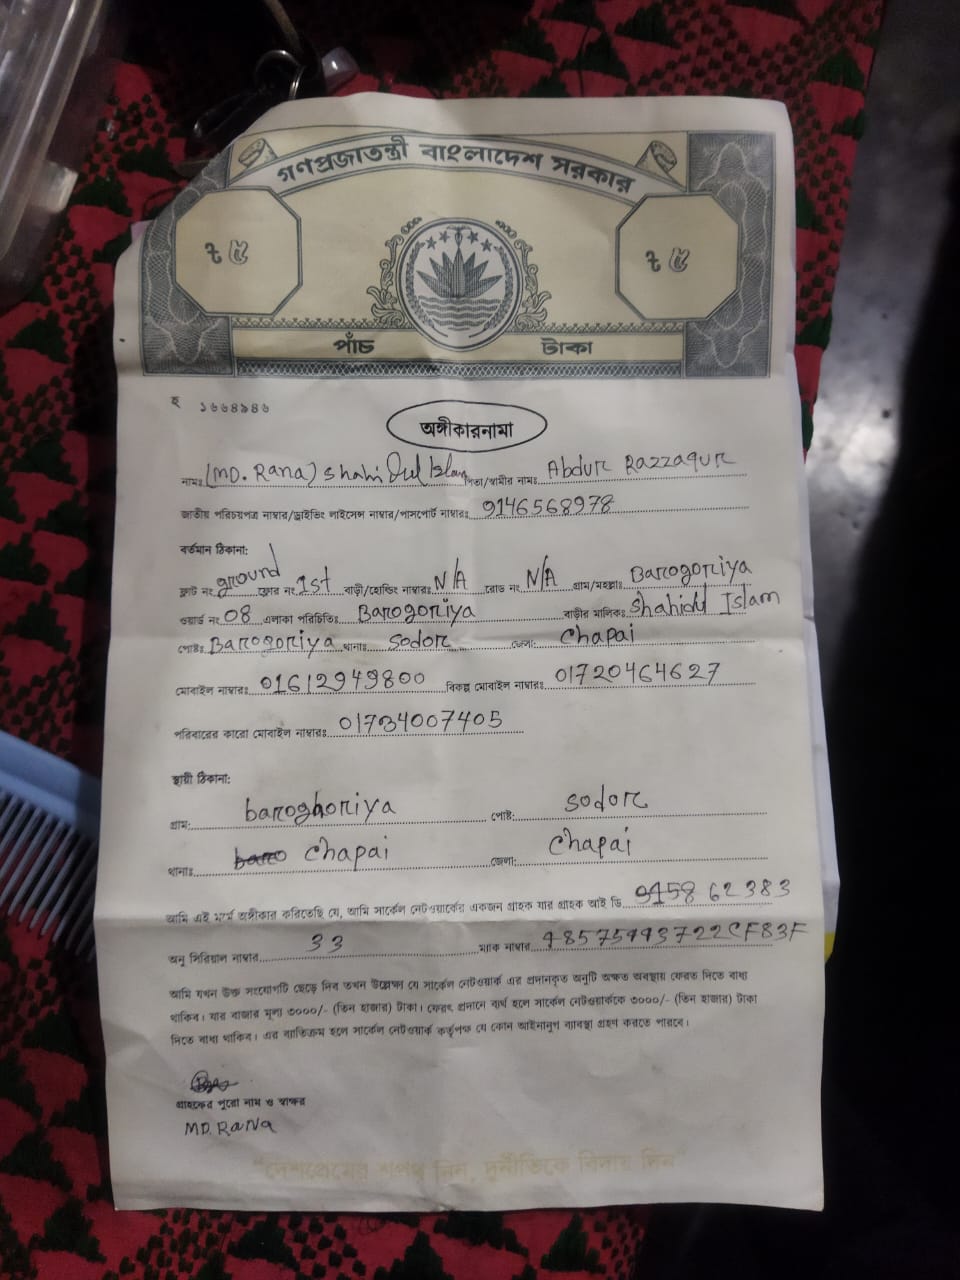 গণপ্রজাতন্ত্রী বাংলাদেশ সরকার
৳ ৫ ৳ ৫
পাঁচ টাকা
হ ১৬৬৪৯৪৬
অঙ্গীকারনামা
নামঃ (MD. Rana) Shahidul Islam পিতা/স্বামীর নামঃ Abdur Razzaqur
জাতীয় পরিচয়পত্র নাম্বার/ড্রাইভিং লাইসেন্স নাম্বার/পাসপোর্ট নাম্বারঃ 9146568978
বর্তমান ঠিকানা:
ফ্লাট নং ground ফ্লোর নং 1st বাড়ী/হোল্ডিং নাম্বারঃ N/A রোড নং N/A গ্রাম/মহল্লাঃ Barogoriya
ওয়ার্ড নং 08 এলাকা পরিচিতিঃ Barogoriya বাড়ীর মালিকঃ Shahidul Islam
পোষ্টঃ Barogoriya থানাঃ sodor জেলা: Chapai
মোবাইল নাম্বারঃ 01612949800 বিকল্প মোবাইল নাম্বারঃ 01720464627
পরিবারের কারো মোবাইল নাম্বারঃ 01734007405
স্থায়ী ঠিকানা:
গ্রাম: baroghoriya পোষ্ট: sodor
থানাঃ chapai জেলা: chapai
আমি এই মর্মে অঙ্গীকার করিতেছি যে, আমি সার্কেল নেটওয়ার্কের একজন গ্রাহক যার গ্রাহক আই ডি 62383
অনু সিরিয়াল নাম্বার 33 ম্যাক নাম্বার
আমি যখন উক্ত সংযোগটি ছেড়ে দিব তখন উল্লেখ্য যে সার্কেল নেটওয়ার্ক এর প্রদানকৃত অনুটি অক্ষত অবস্থায় ফেরত দিতে বাধ্য
থাকিব। যার বাজার মূল্য ৩০০০/- (তিন হাজার) টাকা। ফেরৎ প্রদানে ব্যর্থ হলে সার্কেল নেটওয়ার্ককে ৩০০০/- (তিন হাজার) টাকা
দিতে বাধ্য থাকিব। এর ব্যতিক্রম হলে সার্কেল নেটওয়ার্ক কর্তৃপক্ষ যে কোন আইনানুগ ব্যাবস্থা গ্রহণ করতে পারবে।
গ্রাহকের পুরো নাম ও স্বাক্ষর
MD. RaNa
"দেশপ্রেমের শপথ নিন, দুর্নীতিকে বিদায় দিন"